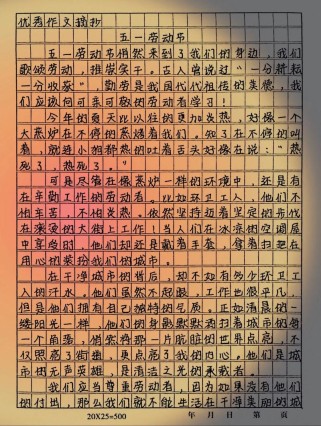 优秀作文摘抄
五一劳动节
五一劳动节悄然来到了我们的身边，我们
歌颂劳动，推崇实干。古人曾说过"一分耕耘
一分收获"，勤劳是我国代代祖传的美德，我
们应该向可亲可敬的劳动者学习！
今年的夏天比以往的更加炎热，好像一个
大蒸炉在不停的蒸烤着我们。知了在不停的叫
着，就连小狗都热的吐着舌头好像在说："热
死了，热死了。"
可是尽管在像蒸炉一样的环境中，还是有
在辛勤工作的劳动者。比如环卫工人，他们不
怕辛苦，不怕炎热。依然坚持迈着坚定的步伐
在滚烫的大街上工作！当人们在冰凉的空调屋
中享受时，他们却还是戴着手套，拿着扫把在
用心的装扮我们的城市。
在干净城市的背后，却不知有多少环卫工
人的汗水。他们虽然不起眼，工作也很平凡，
但是他们拥有自己独特的气质。正如清晨的一
缕阳光一样，他们的身影默默清扫着城市的每
一个角落，悄悄将那一片肮脏的世界点亮，不
仅照亮了街道，更点亮了我们的内心。他们是城
市的无声英雄，是清洁之光的承载者。
我们应当尊重劳动者，因为如果没有他们
的付出，那么我们就不能生活在干净美丽的城
20X25=500 年 月 日 第 页